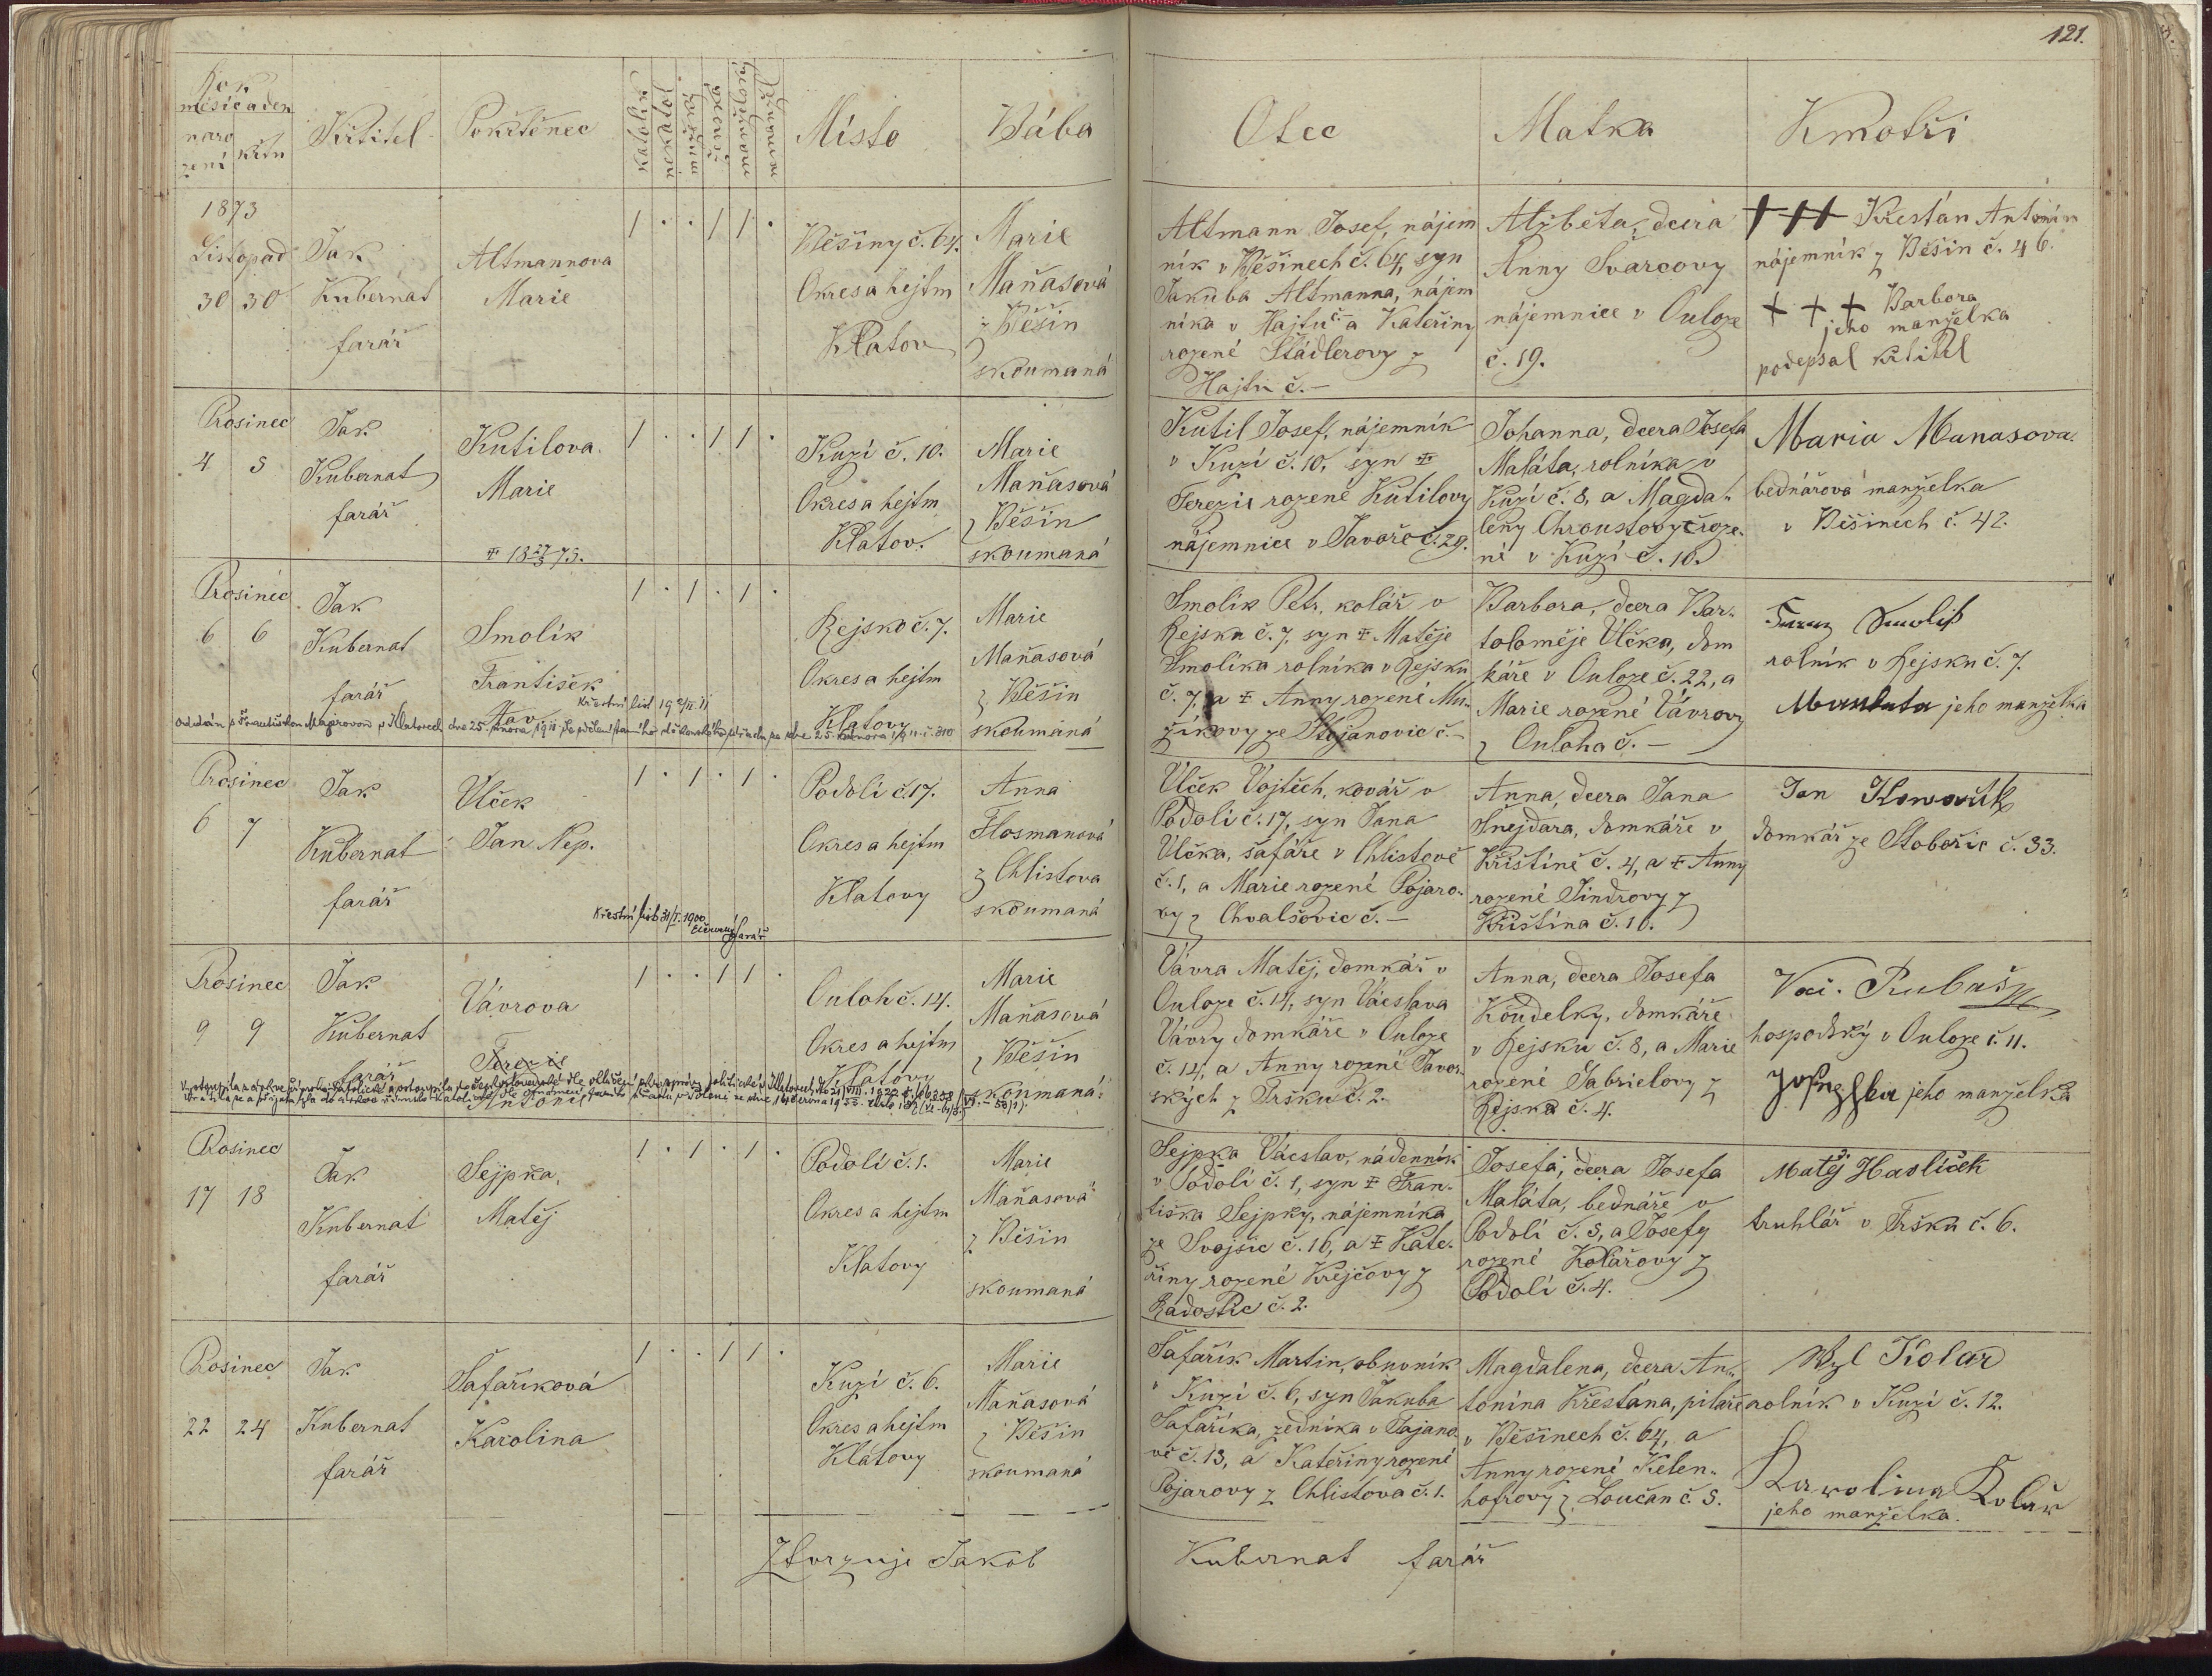 121.
Rok
měsíc a den
naro
zení
křtu
Křtitel
Pokřtěnec
katolík
nekatol.
mužsk.
ženské
manželské
nemanžel.
Místo
Bába
Otec
Matka
Kmotři
1873
Listopad
30 30
Jak
Kubernat
farář
Altmannova
Marie
1 . . 1 1 .
Běšiny č. 64.
Okres a hejtm
Klatov
Marie
Maňasová
z Běšin
skoumaná
Altmann Josef, nájem
ník v Běšinech č. 64, syn
Jakuba Altmanna, nájem
níka v Hajtu č– a Kateřiny
rozené Stádlerovy z
Hajtu č. –
Alžběta, dcera
Anny Švarcovy
nájemnice v Ouloze
č. 19.
+++ Křesťán Antonín
nájemník z Běšin č. 46.
+ + + Barbora
jeho manželka
podepsal křtitel
Prosinec
4 5
Jak
Kubernat
farář
Kutilova
Marie
1 . . 1 1 .
Kuzí č. 10.
Okres a hejtm
Klatov.
Marie
Maňasová
z Běšin
skoumaná
Kutil Josef, nájemník
v Kuzí č. 10, syn ‡
Terezie rozené Kutilovy
nájemnice v Javoře č. 29.
Johanna, dcera Josefa
Maláta, rolníka v
Kuzí č. 8, a Magda-
leny Chroustovy roze-
né v Kuzí č. 10.
Maria Manasova.
bednářová manželka
v Běšinech č. 42.
Prosinec
6 6
Jak
Kubernat
farář
Smolík
František
1 . 1 . 1 .
Rejsko č. 7.
Okres a hejtm
Klatovy
Marie
Maňasová
z Běšin
skoumaná
Smolík Petr, kolář v
Rejsku č. 7, syn ‡ Matěje
Smolíka rolníka v Rejsku
č. 7, a ‡ Anny rozené Mu-
zikovy ze Stojanovic č. –
Barbora, dcera Bar-
toloměje Vlčka, dom
káře v Ouloze č. 22, a
Marie rozené Vávrovy
z Ouloha č. –
Smolik
rolník v Rejsku č. 7.
jeho manželka
Prosinec
6 7
Jak
Kubernat
farář
Vlček
Jan Nep.
Křestní list 31/I. 1900
farář
1 . 1 . 1 .
Podolí č. 17.
Okres a hejtm
Klatovy
Anna
Flosmanová
z Chlistova
skoumaná
Vlček Vojtěch, kovář v
Podolí č. 17, syn Jana
Vlčka, šafáře v Chlistově
č. 1, a Marie rozené Pojaro-
vy z Chvalšovic č. –
Anna, dcera Jana
Šnejdara, domkáře v
Křištíně č. 4, a ‡ Anny
rozené Jindrovy z
Křištína č. 10.
Jan
domkář ze Stobořic č. 33.
Prosinec
9 9
Jak
Kubernat
farář
Vávrova
Terezie
Antonie
1 . . 1 1 .
Ouloh č. 14.
Okres a hejtm
Klatovy
Marie
Maňasová
z Běšin
skoumaná
Vávra Matěj, domkář v
Ouloze č. 14, syn Václava
Vávry domkáře v Ouloze
č. 14, a Anny rozené Javor-
ských z Tršku č. 2.
Anna, dcera Josefa
Koudelky, domkáře
v Rejsku č. 8, a Marie
rozené Gabrielovy z
Rejska č. 4.
Vac. Rubaš
hospodský v Ouloze č. 11.
jeho manželka
Prosinec
17 18
Jak
Kubernat
farář
Sejpka,
Matěj
1 . 1 . 1 .
Podolí č. 1.
Okres a hejtm
Klatovy
Marie
Maňasová
z Běšin
skoumaná
Sejpka Václav, nádenník
v Podolí č. 1, syn ‡ Fran-
tiška Sejpky, nájemníka
ze Svojšic č. 16, a ‡ Kate-
řiny rozené Krejčovy z
Radostic č. 2.
Josefa, dcera Josefa
Maláta, bednáře v
Podolí č. 5, a Josefy
rozené Kolářovy z
Podolí č. 4.
Matěj Haslíček
truhlář v Tršku č. 6.
Prosinec
22 24
Jak
Kubernat
farář
Šafaříková
Karolina
1 . . 1 1 .
Kuzí č. 6.
Okres a hejtm
Klatovy
Marie
Maňasová
z Běšin
skoumaná
Šafařík Martin, obuvník
v Kuzí č. 6, syn Jakuba
Šafaříka, zedníka v Tajano-
vě č. 13, a Kateřiny rozené
Pojarovy z Chlistova č. 1.
Magdalena, dcera An-
tonína Křesťána, pilaře
v Běšinech č. 64, a
Anny rozené Kelen-
hofrovy z Loučan č. 5.
Kolar
rolník v Kuzí č. 12.
Karolina Kolař
jeho manželka.
Ztvrzuje Jakob Kubernat farář